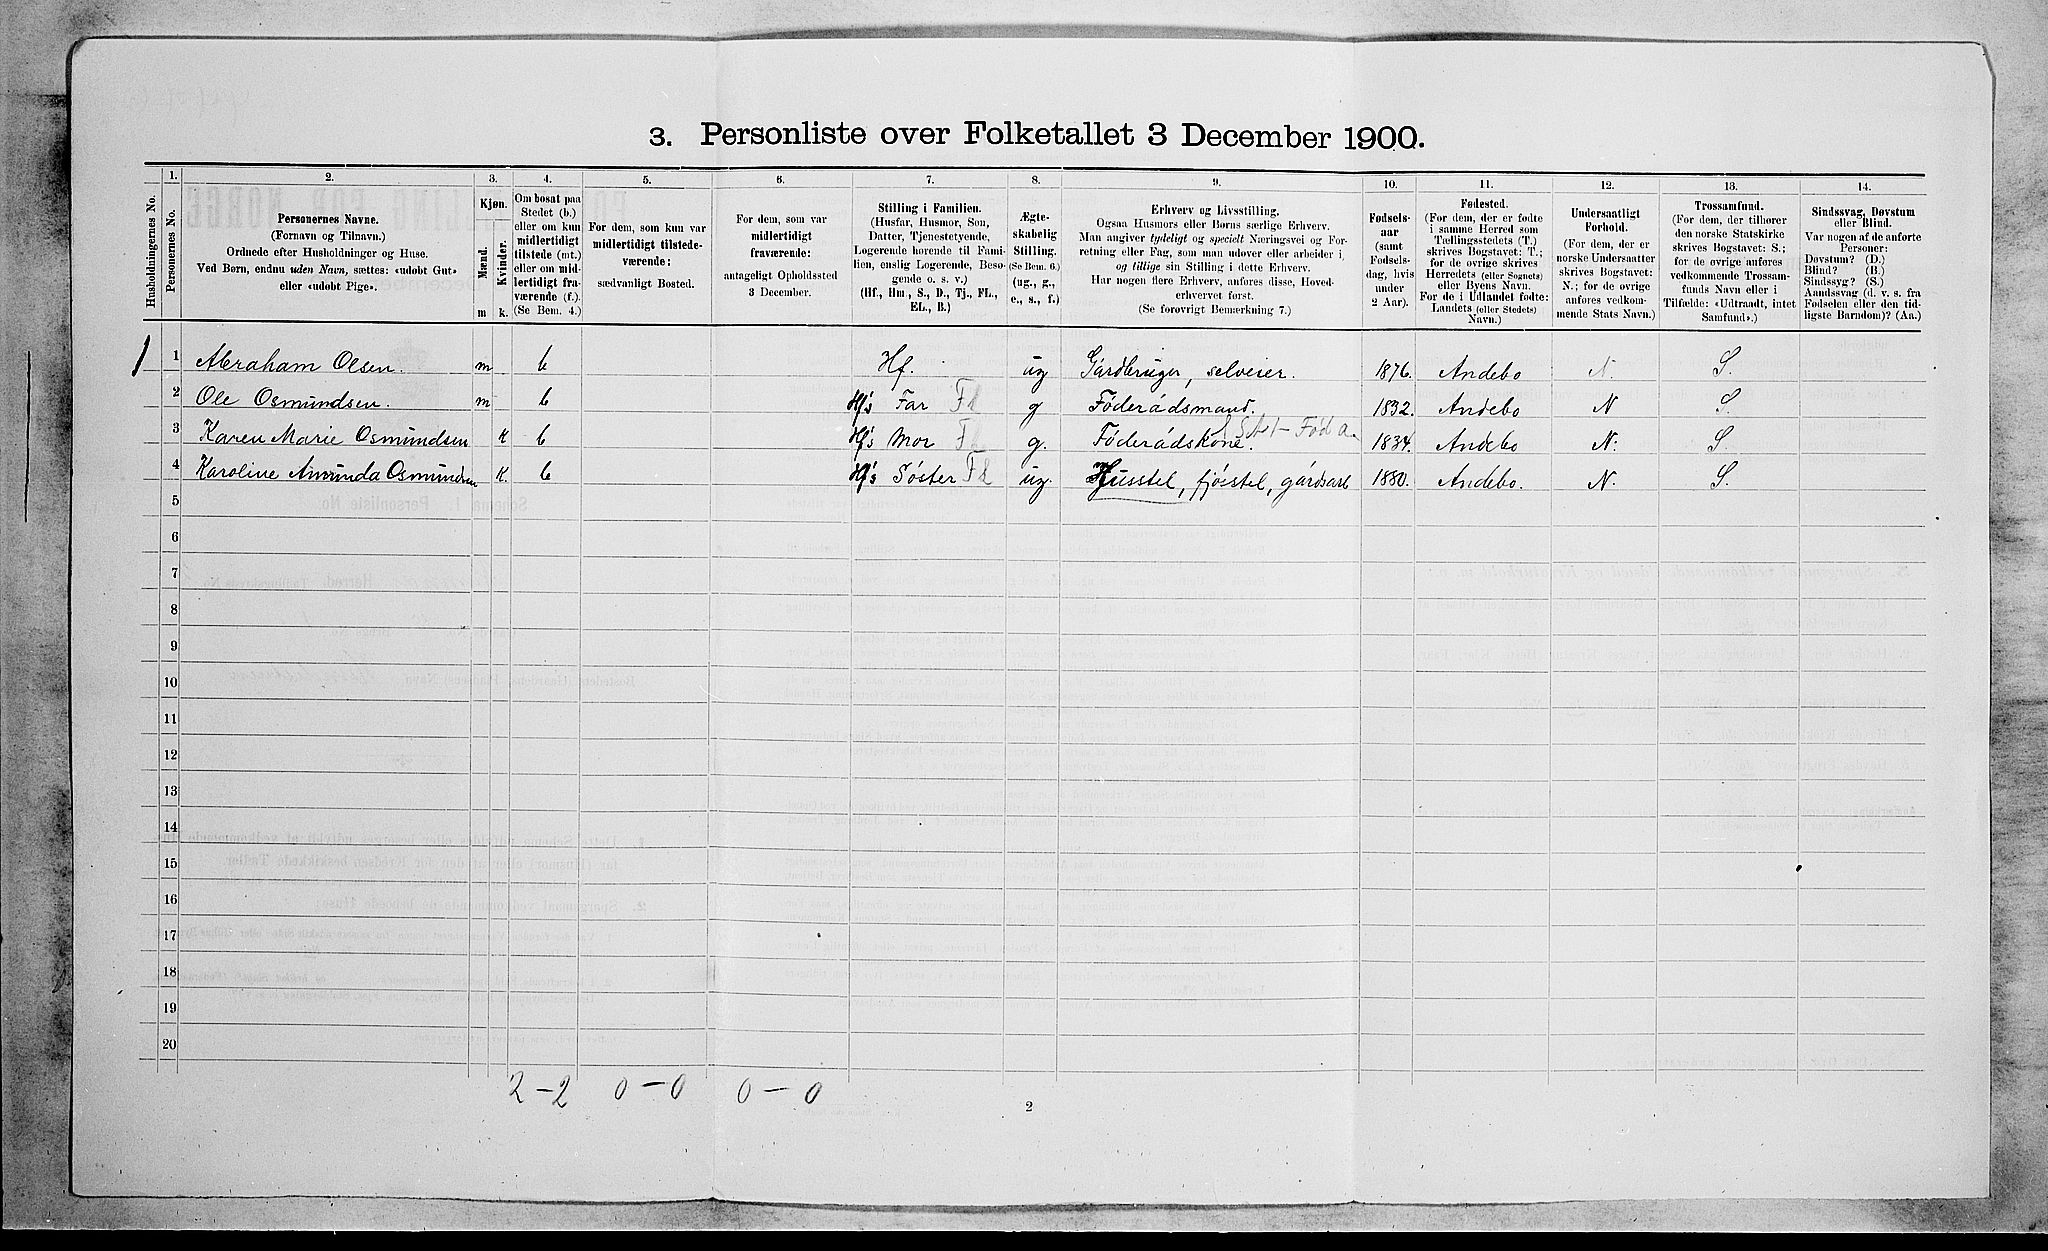 3. Personliste over Folketallet 3 December 1900.
Husholdningernes No.
1.
Personernes No.
2.
Personernes Navne.
(Fornavn og Tilnavn.)
Ordnede efter Husholdninger og Huse.
Ved Børn, endnu uden Navn, sættes: «udobt Gut»
eller «udobt Pige».
3.
Kjøn.
Mænd.
Kvinder.
m
k.
4.
Om bosat paa
Stedet (b.)
eller om kun
midlertidigt
tilstede (mt.)
eller om mid-
lertidigt fra-
værende (f.).
(Se Bem. 4.)
5.
For dem, som kun var
midlertidigt tilstede-
værende:
sædvanligt Bosted.
6.
For dem, som var
midlertidigt
fraværende:
antageligt Opholdssted
3 December.
7.
Stilling i Familien.
(Husfar, Husmor, Søn,
Datter, Tjenestetyende,
Logerende hørende til Fami-
lien, enslig Logerende, Besø-
gende o. s. v.)
(Hf., Hm., S., D., Tj., FL.,
EL., B.)
8.
Ægte-
skabelig
Stilling.
(Se Bem. 6.)
(ug., g.,
e., s., f.)
9.
Erhverv og Livsstilling.
Ogsaa Husmors eller Børns særlige Erhverv.
Man angiver tydeligt og specielt Næringsvei og For-
retning eller Fag, som man udøver eller arbeider i,
og tillige sin Stilling i dette Erhverv.
Har nogen flere Erhverv, anføres disse, Hoved-
erhvervet først.
(Se forøvrigt Bemærkning 7.)
10.
Fødsels-
aar
(samt
Fødsels-
dag, hvis
under
2 Aar).
11.
Fødested.
(For dem, der er fødte
i samme Herred som
Tællingsstedets (T.)
skrives Bogstavet: T.;
for de øvrige skrives
Herredets (eller Sognets)
eller Byens Navn.
For de i Udlandet fødte:
Landets (eller Stedets)
Navn.)
12.
Undersaatligt
Forhold.
(For dem, der er
norske Undersaatter
skrives Bogstavet:
N.; for de øvrige
anføres vedkom-
mende Stats Navn.)
13.
Trossamfund.
(For dem, der tilhører
den norske Statskirke
skrives Bogstavet: S.;
for de øvrige anføres
vedkommende Trossam-
funds Navn eller i
Tilfælde: «Udtraadt, intet
Samfund».)
14.
Sindssvag, Døvstum
eller Blind.
Var nogen af de anførte
Personer:
Døvstum? (D.)
Blind? (B.)
Sindssyg? (S.)
Aandssvag (d. v. s. fra
Fødselen eller den tid-
ligste Barndom)? (Aa.)
1 1 Abraham Olsen. m b Hf. ug Gårdbruger, selveier. 1876. Andebo N. S.
2 Ole Osmundsen. m b Hf's Far Fl g Föderådsmand. 1832. Andebo N S.
3 Karen Marie Osmundsen K b Hf's Mor Fl. g. Föderådskone. 1834. Andebo N. S.
4 Karoline Amunda Osmundsen K. b Hf's Söster Fl ug. Husstel, fjösstel, gårdsarb 1880. Andebo. N. S.
5
6
7
8
9
10
11
12
13
14
15
16
17
18
19
20
2 – 2 0 – 0 0 – 0
2